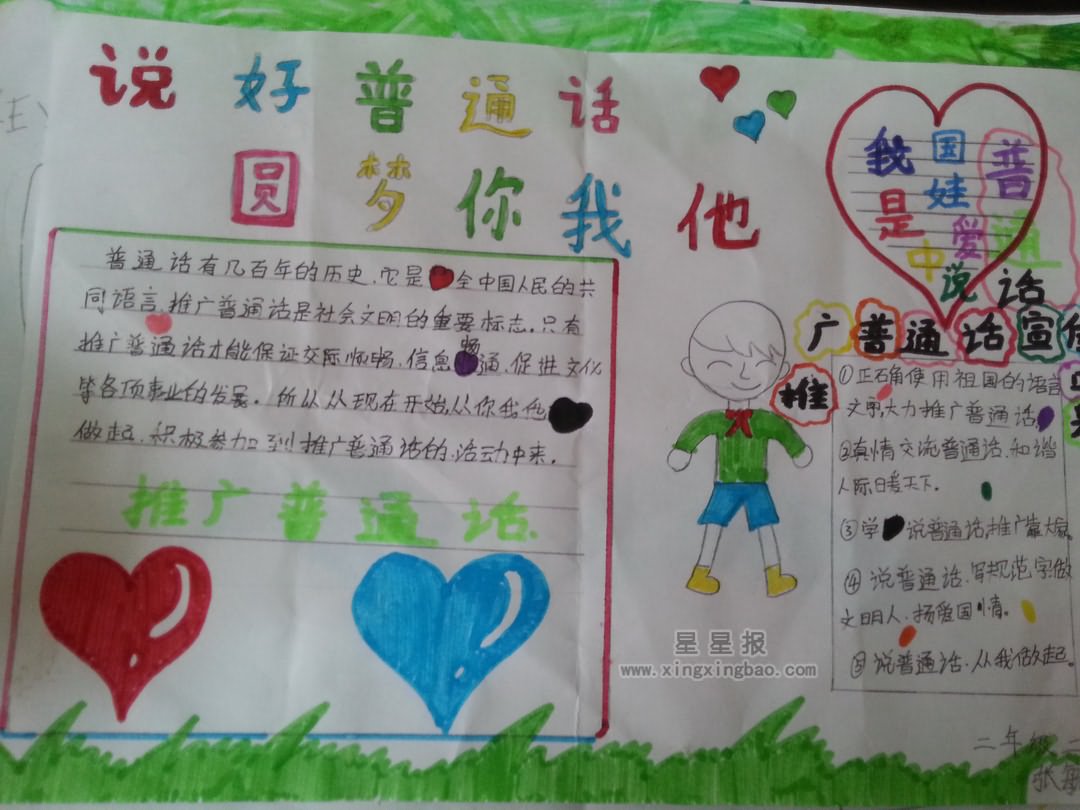 说好普通话
圆梦你我他
普通话有几百年的历史,它是全中国人民的共
同语言,推广普通话是社会文明的重要标志,只有
推广普通话才能保证交际顺畅,信息畅通,促进文化
等各项事业的发展。所以从现在开始,从你我他
做起,积极参加到推广普通话的活动中来。
推广普通话.
我是中国娃
爱说普通话
推广普通话宣传
①正确使用祖国的语言
文字,大力推广普通话
②真情交流普通话,和谐
人际日暖天下。
③学说普通话,推广靠大家。
④说普通话,写规范字做
文明人,扬爱国情。
⑤说普通话,从我做起。
星星报
www.xingxingbao.com
二年级
张